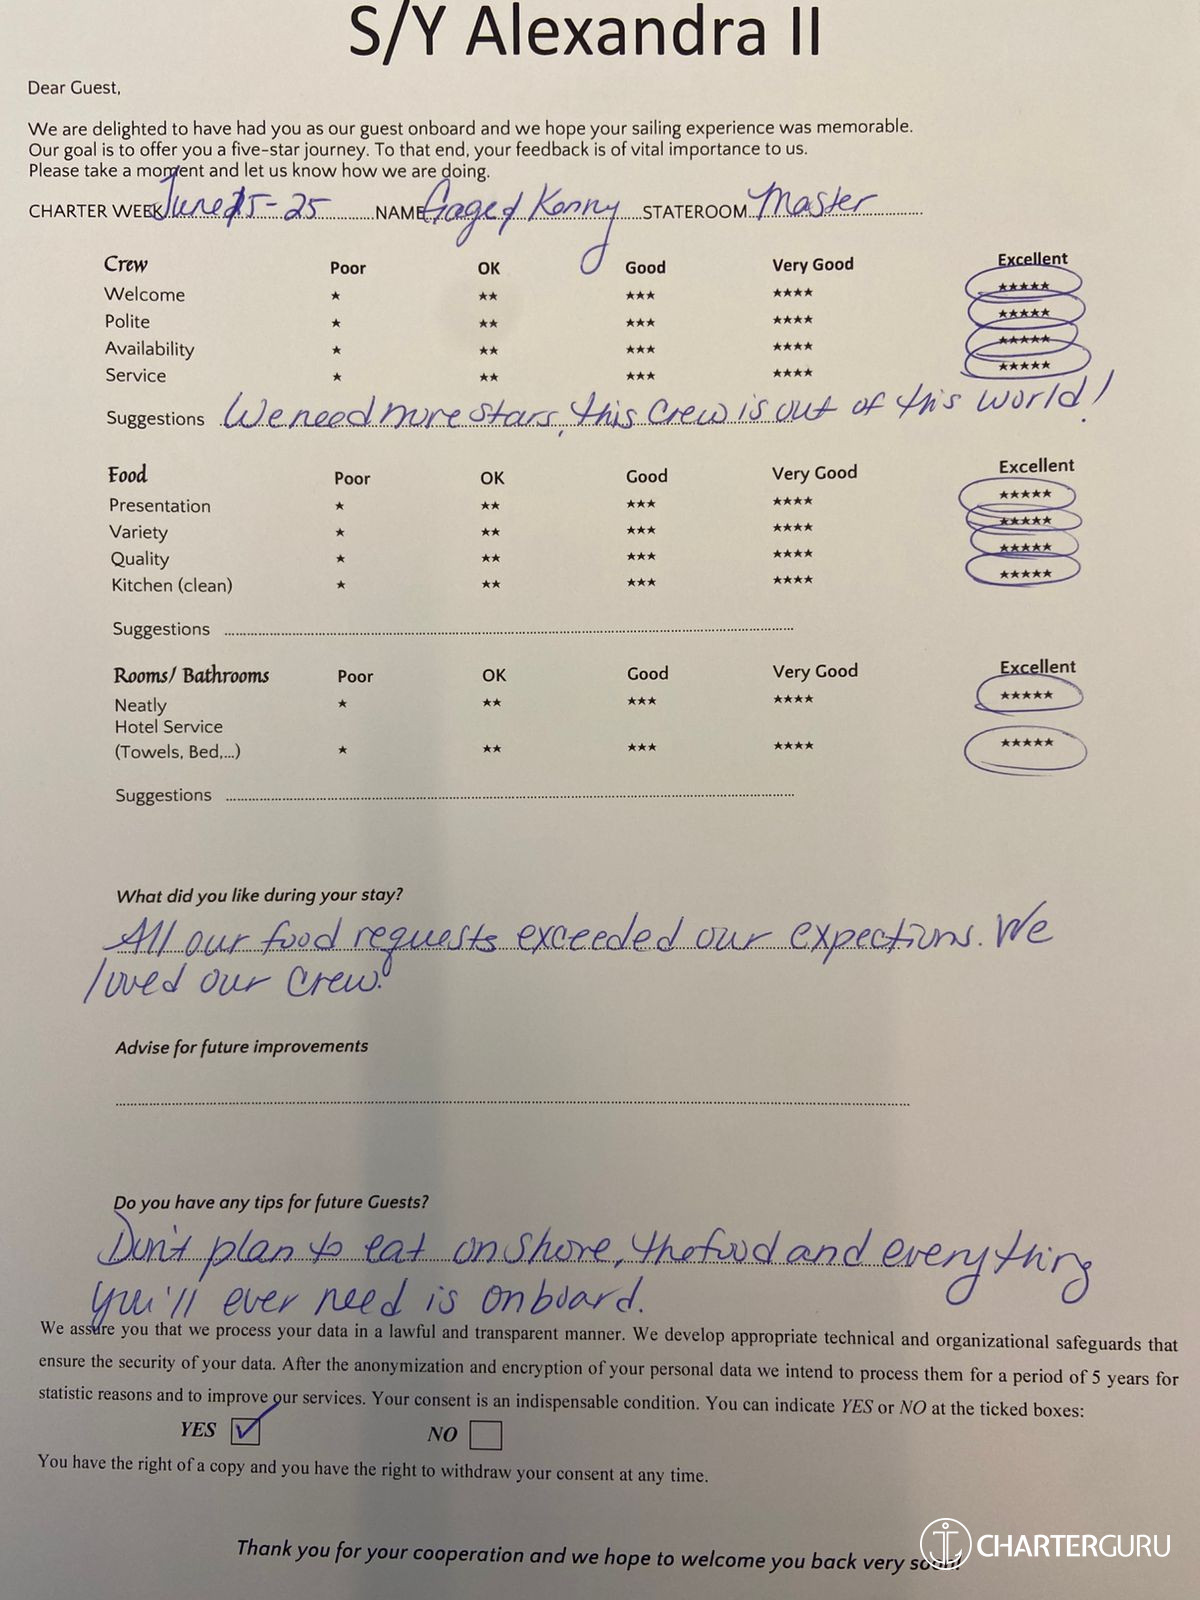 S/Y Alexandra II
Dear Guest,
We are delighted to have had you as our guest onboard and we hope your sailing experience was memorable.
Our goal is to offer you a five-star journey. To that end, your feedback is of vital importance to us.
Please take a moment and let us know how we are doing.
CHARTER WEEK June 15-25 NAME Gage & Kenny STATEROOM Master
Crew Poor OK Good Very Good Excellent
Welcome ★ ★★ ★★★ ★★★★ ★★★★★
Polite ★ ★★ ★★★ ★★★★ ★★★★★
Availability ★ ★★ ★★★ ★★★★ ★★★★★
Service ★ ★★ ★★★ ★★★★ ★★★★★
Suggestions We need more stars, this crew is out of this world!
Food Poor OK Good Very Good Excellent
Presentation ★ ★★ ★★★ ★★★★ ★★★★★
Variety ★ ★★ ★★★ ★★★★ ★★★★★
Quality ★ ★★ ★★★ ★★★★ ★★★★★
Kitchen (clean) ★ ★★ ★★★ ★★★★ ★★★★★
Suggestions
Rooms/ Bathrooms Poor OK Good Very Good Excellent
Neatly ★ ★★ ★★★ ★★★★ ★★★★★
Hotel Service
(Towels, Bed,...) ★ ★★ ★★★ ★★★★ ★★★★★
Suggestions
What did you like during your stay?
All our food requests exceeded our expections. We
loved our crew.
Advise for future improvements
Do you have any tips for future Guests?
Don't plan to eat on shore, the food and everything
you'll ever need is onboard.
We assure you that we process your data in a lawful and transparent manner. We develop appropriate technical and organizational safeguards that
ensure the security of your data. After the anonymization and encryption of your personal data we intend to process them for a period of 5 years for
statistic reasons and to improve our services. Your consent is an indispensable condition. You can indicate YES or NO at the ticked boxes:
YES ☑ NO ☐
You have the right of a copy and you have the right to withdraw your consent at any time.
Thank you for your cooperation and we hope to welcome you back very soon!
CHARTERGURU